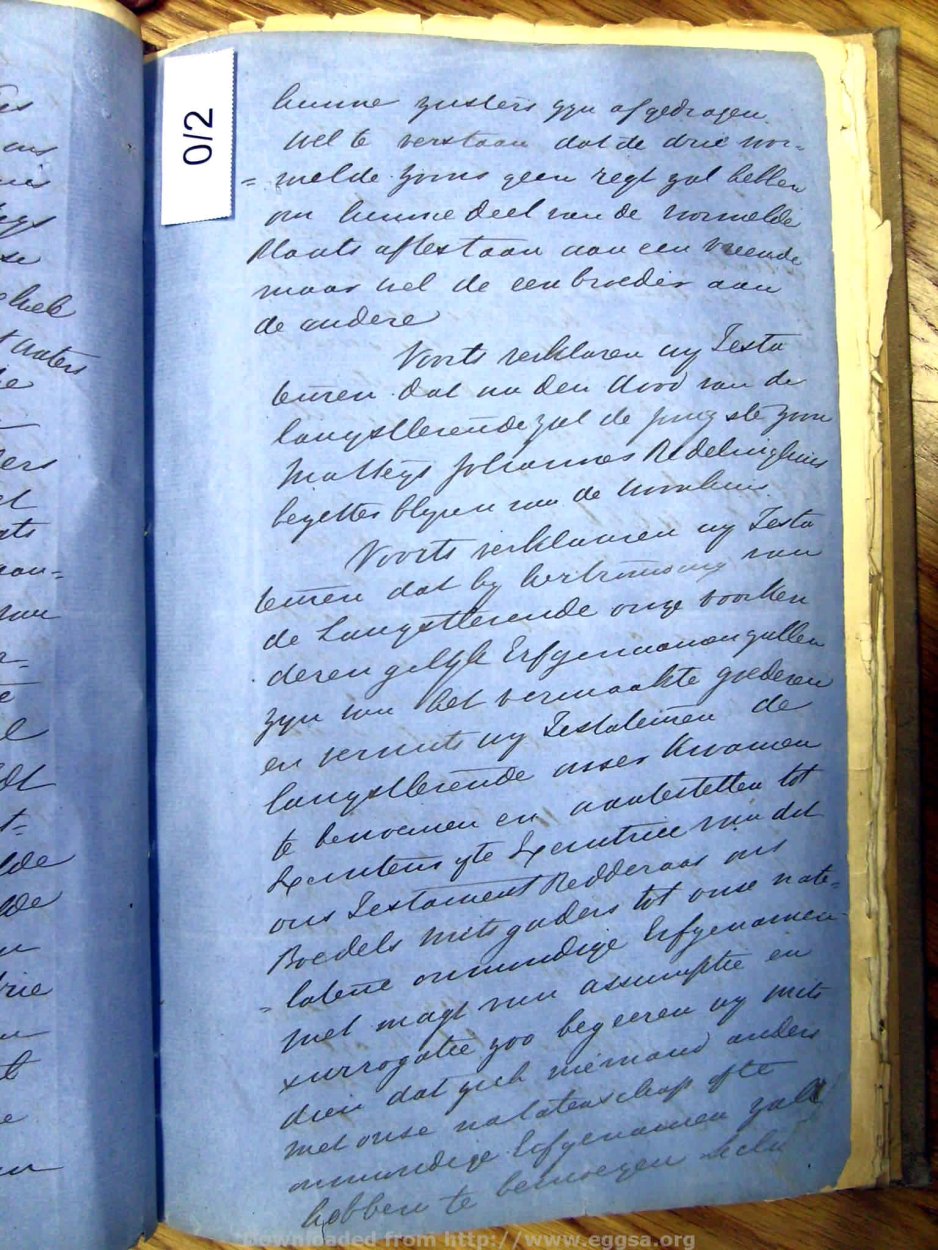 0/2
hunne zusters zyn afgedragen
wel te verstaan dat de drie vor-
= melde zoons geen regt zal hebben
om hunne deel van de vormelde
Plaats aftestaan aan een vreende
maar wel de een broeder aan
de andere
Voorts verklaren wy Testa
teuren dat na den dood van de
langstlevende zal de jongste zoon
Matteys Johannes Redelinghuis
bezetter blyven van de woonhuis
Voorts verklaaren wy Testa
teuren dat by hertrouwing van
de Langstlevende onze voorken
deren gelyk Erfgenaamen zullen
zyn van het vermaakte goederen
en vermits wy Testateuren de
langstlevende onser kwamen
te benoemen en aantestellen tot
Executeur ofte Executrice van dit
ons Testament Redderaar ons
Boedels mitsgaders tot onse nate-
= latene onmundige Erfgenamen
met magt van assumptie en
surrogatie zoo begeeren wy mits
dien dat zich niemand anders
met onse nalatenschap ofte
onmundige Erfgenamen zal
hebben te bemoeyen
Downloaded from http://www.eggsa.org